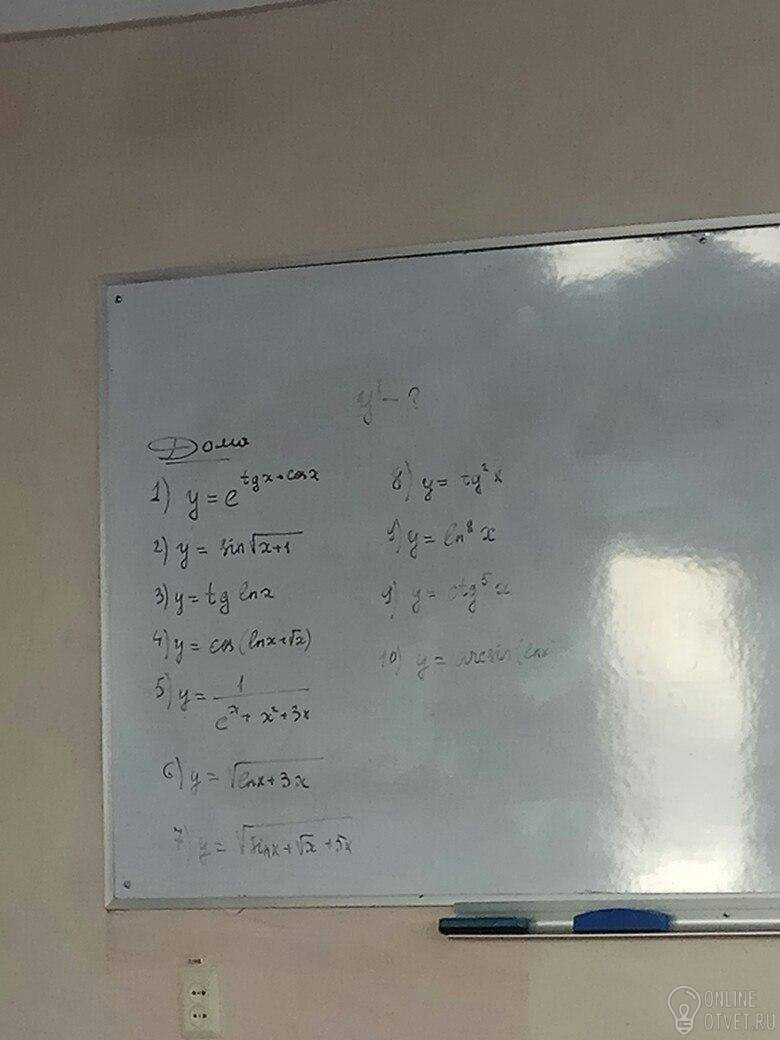 y' - ?
Дома
1) y = e^{tg x + cos x}
2) y = sin √(x+1)
3) y = tg ln x
4) y = cos (ln x + √x)
5) y = 1 / (e^x + x² + 3x)
6) y = √(ln x + 3x)
7) y = √(sin x + √x + 5x)
8) y = tg² x
9) y = ln⁸ x
9) y = ctg⁵ x
10) y = arcsin (ln x)
ONLINE
OTVET.RU